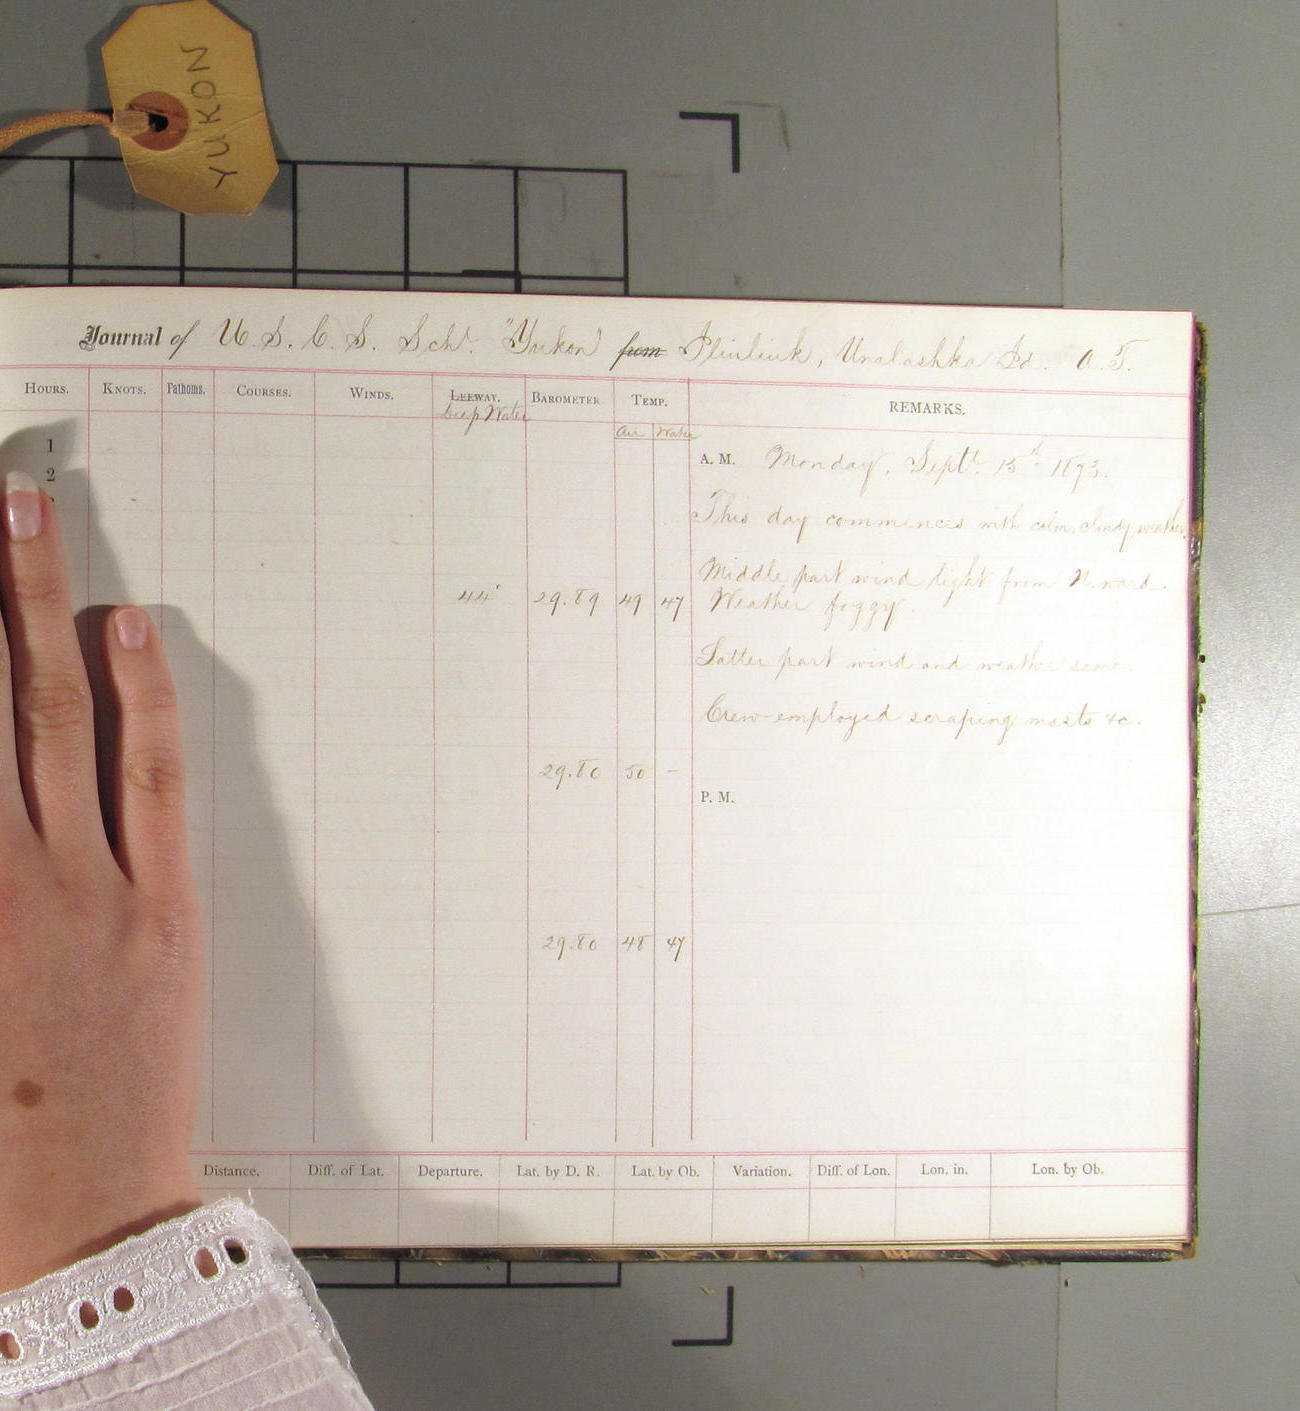 YUKON
Journal of U. S. C. S. Schr. "Yukon" from Iliuliuk, Unalashka Id. A. T.
HOURS. KNOTS. Fathoms. COURSES. WINDS. LEEWAY. BAROMETER TEMP. REMARKS.
Deep Water
Air Water
1
A. M. Monday, Septr. 15th 1873.
2
This day commences with calm, cloudy weather.
Middle part wind light from N. ward.
44' 29.89 49 47 Weather foggy.
Latter part wind and weather same.
Crew employed scraping masts &c.
29.80 50 –
P. M.
29.80 48 47
Distance. Diff. of Lat. Departure. Lat. by D. R. Lat. by Ob. Variation. Diff. of Lon. Lon. in. Lon. by Ob.